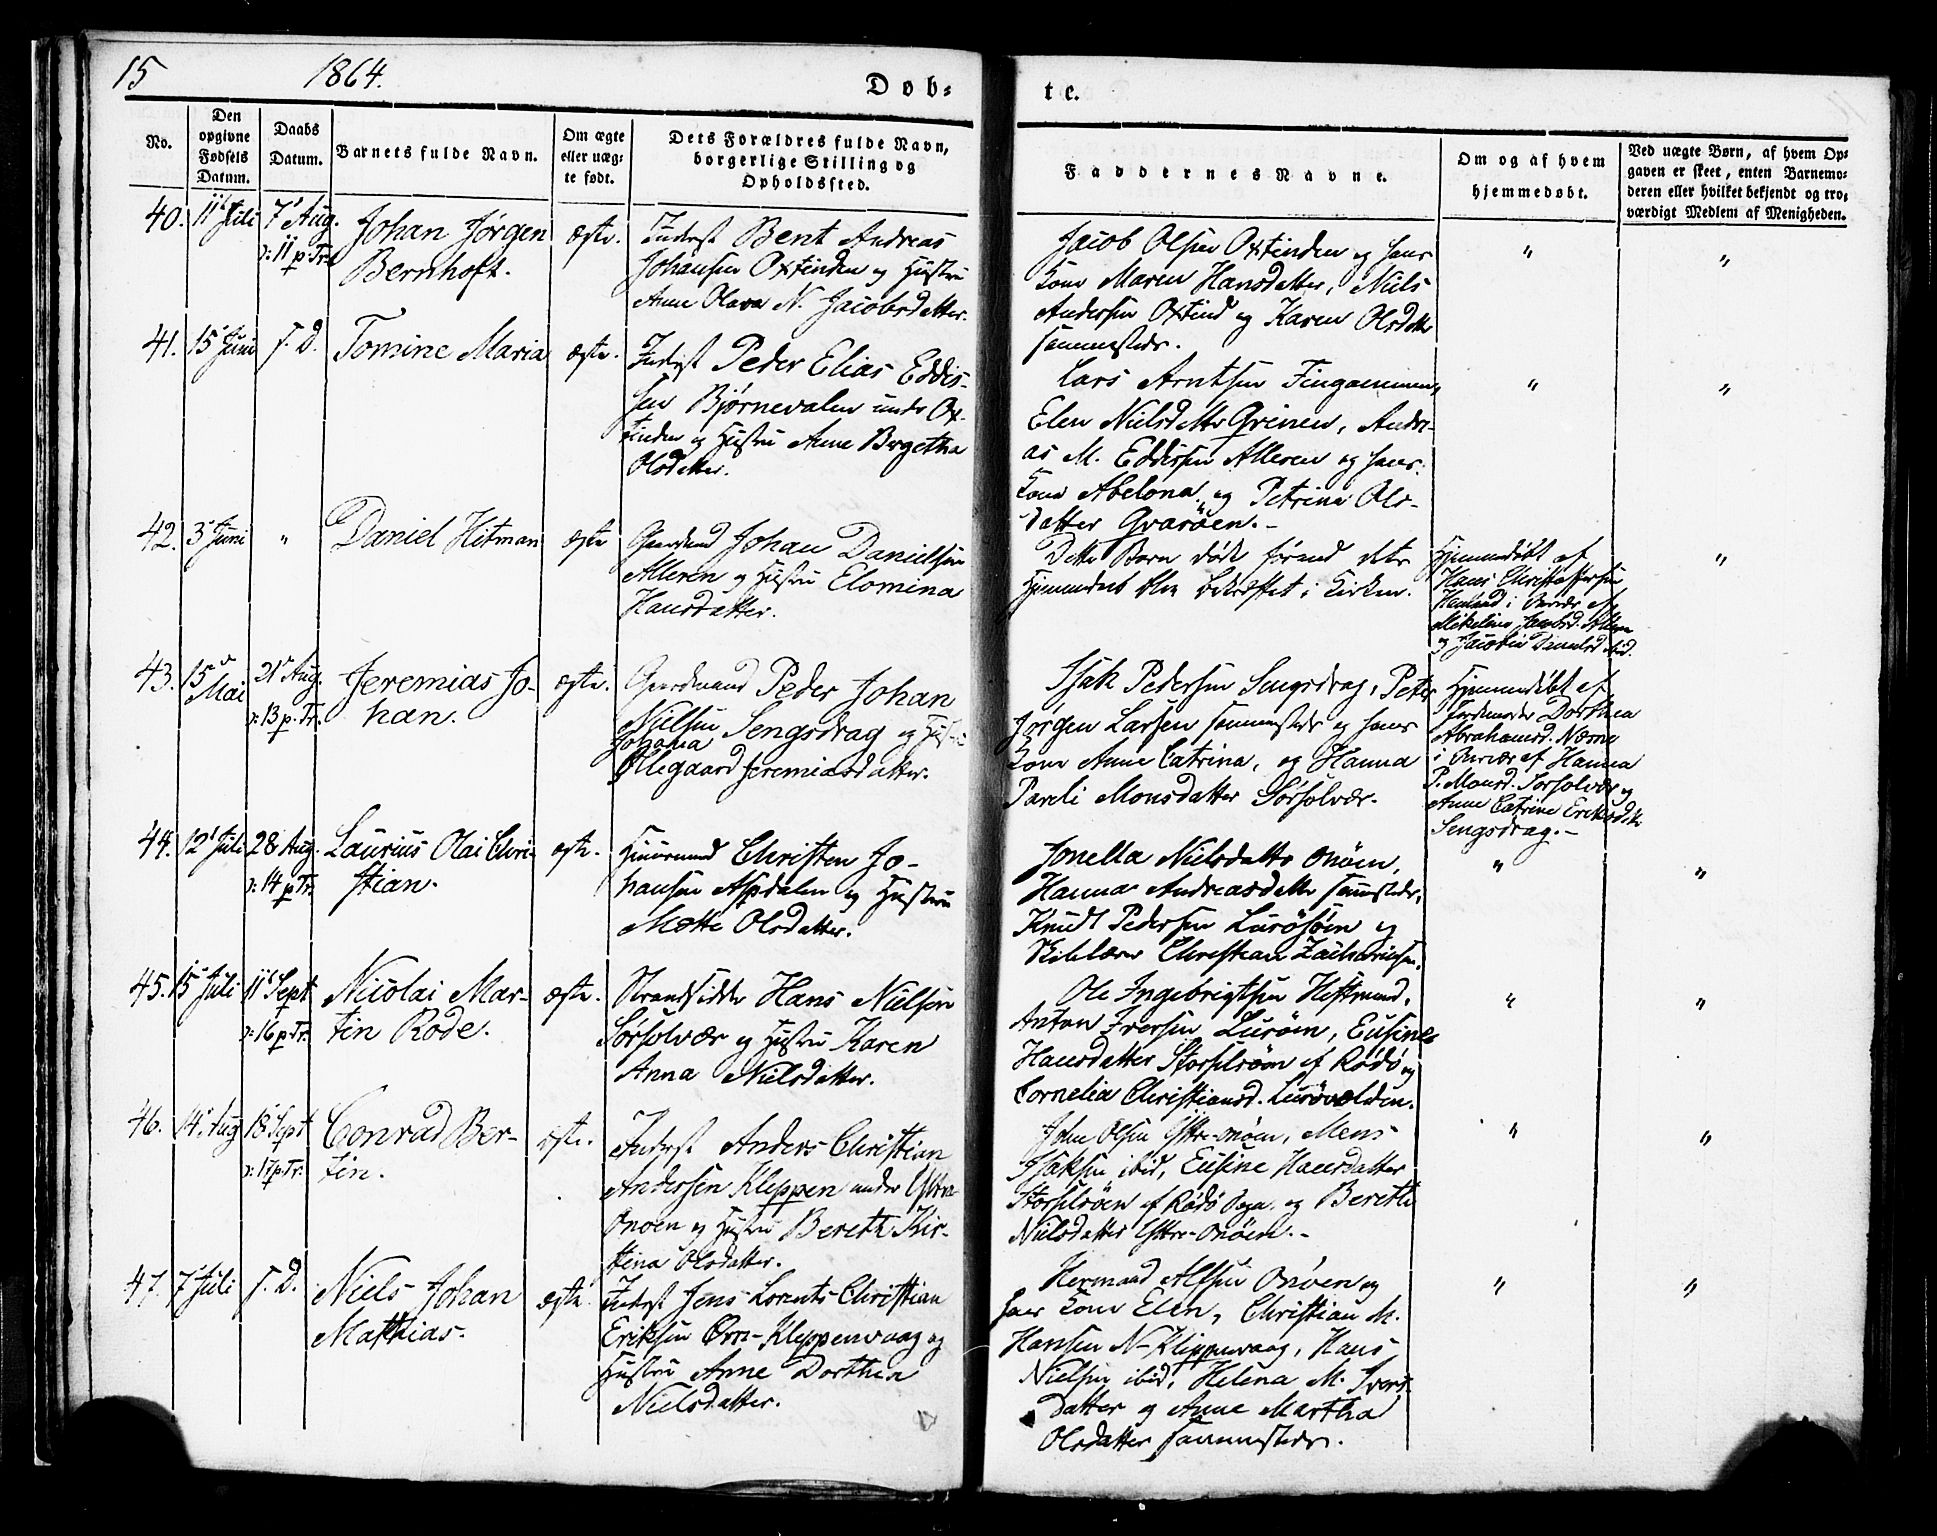 15
1864.
Døb-
te.
No.
Den opgivne Fødsels Datum.
Daabs Datum.
Barnets fulde Navn.
Om ægte eller uæg-
te født.
Dets Forældres fulde Navn,
borgerlige Stilling og
Opholdssted.
Faddernes Navne.
Om og af hvem
hjemmedøbt.
Ved uægte Børn, af hvem Op-
gaven er skeet, enten Barnemo-
deren eller hvilket bekjendt og tro-
værdigt Medlem af Menigheden.
40. 11 Juli 7 Aug. Johan Jørgen ægte. Inderst Bent Andreas
ɔ: 11 p. Tr. Bernhoft. Johansen Oxtinden og Hustru
Anne Olava N. Jacobsdatter.
Jacob Olsen Oxtinden og hans
Kone Maren Hansdatter, Niels
Andersen Oxtind og Karen Olsdatter
sammesteds.
" "
41. 15 Juni s. D. Tomine Maria ægte. Inderst Peder Elias Eddis-
sen Bjørnevalen under Ox-
tinden og Hustru Anne Bergetha
Olsdatter.
Lars Arntsen Fingammen,
Elen Nielsdatter Grinen, Andre-
as M. Eddissen Alleren og hans
Kone Abelona, og Petrina Ols-
datter Qvarøen.-
" "
42. 3 Juni " Daniel Hitman ægte Gaardmand Johan Danielsen
Alleren og Hustru Elomina
Hansdatter.
Dette Barn døde førend dets
Hjemmedaab blev bekræftet i Kirken.
Hjemmedøbt af
Hans Christoffersen
i Overvær af
Mikeline Jacobsd. Alleren
og Jacobin Danielsd. ibid.
"
43. 15 Mai 21 Aug. Jeremias Jo- ægte. Gaardmand Peder Johan
ɔ: 13 p. Tr. han. Nielsen Sengsdrag og Hustru
Johanna
Ollegaard Jeremiasdatter.
Isak Pedersen Sengsdrag, Peter
Jørgen Larsen sammesteds og hans
Kone Anne Catrina, og Hanna
Pareli Monsdatter Sørsolvær.
Hjemmedøbt af
Jordemoder Dorthea
Abrahamsd. Næsne
i Overvær af Hanna
P. Monsd. Sørsolvær og
Anne Catrine Eriksdtr
Sengsdrag.-
44. 12 Juli 28 Aug. Laurius Olai Chri- ægte. Huusmand Christen Jo-
ɔ: 14 p. Tr. stian. hansen Aspdalen og Hustru
Mette Olsdatter.
Jonella Nielsdatter Onøen,
Hanna Andreasdatter sammesteds,
Knudt Pedersen Lurøsøen og
Christian Zachariasen.
" "
45. 15 Juli 11 Sept Nicolai Mar- ægte. Strandsidder Hans Nielsen
ɔ: 16 p. Tr. tin Rode. Sørsolvær og Hustru Karen
Anna Nielsdatter.
Ole Ingebrigtsen Hestmand,
Anton Iversen Lurøen, Eusine
Hansdatter Storselsøen af Rødø og
Cornelia Christiansd. Lurøvolden.
" "
46. 14 Aug 18 Sept Conrad Ber- ægte. Inderst Anders Christian
ɔ: 17 p. Tr. tin. Andersen Kleppen under Ystre-
Onøen og Hustru Bereth Kir-
stina Olsdatter.
John Olsen Ystre-Onøen, Mens
Isaksen ibid, Eusine Hansdatter
Storselsøen af Rødø Pgn. og Bereth
Nielsdatter Ystre-Onøen.-
" "
47. 7 Juli s. D. Niels Johan ægte. Inderst Jens Lorents Christian
Matthias. Eriksen Ørn-Kleppenvaag og
Hustru Anne Dorthea
Nielsdatter.
Hermand Alfsen Onøen og
hans Kone Elen, Christian M.
Hansen N-Kleppenvaag, Hans
Nielsen ibid, Helena M. Ivers-
datter og Anne Martha
Olsdatter sammesteds.
" "